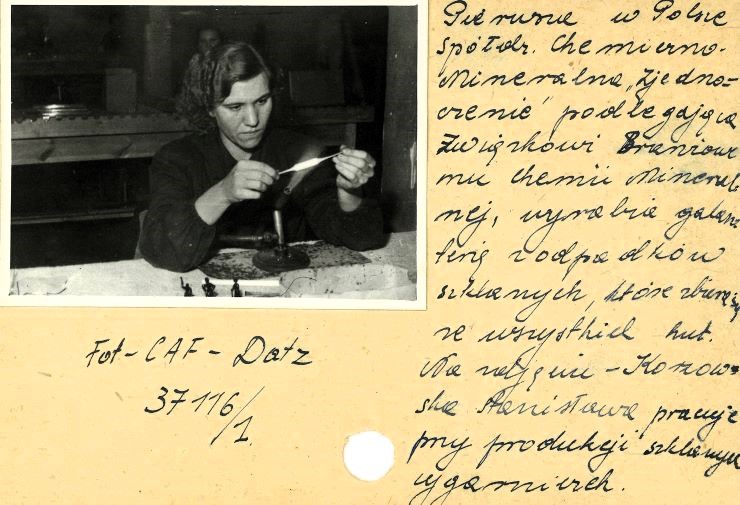 Pierwsza w Polsce
spółdz. Chemiczno-
Mineralna „Zjedno-
czenie" podlegająca
Związkowi Branżowe
mu Chemii Mineral
nej, wyrabia galan
terię z odpadków
szklanych, które zbiera się
ze wszystkich hut.
Na zdjęciu - Kozow-
ska Stanisława pracuje
przy produkcji szklanych
cygarniczek.
Fot - CAF - Datz
37116/1